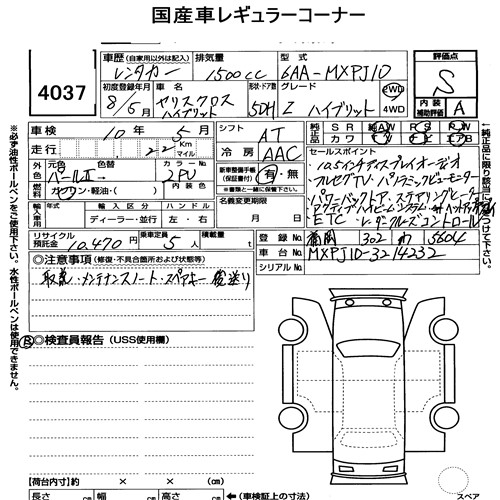 国産車レギュラーコーナー
4037
車歴 (自家用以外は記入) 排気量 型式 評価点
レンタカー 1500cc 6AA-MXPJ10 S
初度登録年月 車名 形状・ドア数 グレード 2WD 4WD 内装補助評価 A
8/6 ヤリスクロス ハイブリット 5DH Z ハイブリット
車検 10年 5月 シフト AT
純正 S R A W P S P W
カワ
走行 22 Km マイル 冷房 AAC
セールスポイント
10.5インチディスプレイオーディオ
外色 元色 色替 カラーNo. 新車整備手帳(保証書付) 有・無
パールII 2PU
フルセグTV・パノラミックビューモニター
燃料 ガソリン・軽油・( )
パワーバックドア・ステアリングヒーター
輸入車用 輸入区分 ハンドル 名義変更期限
ディーラー・並行 左・右 月 日
ETC・レーダークルーズコントロール
リサイクル預託金 10,470円 乗車定員 5人 積載量 t
登録No. 福岡 302 わ 5604
車台No. MXPJ10-3214232
シリアルNo.
◎注意事項 (修復・不具合箇所および状態等)
取説・メンテナンスノート・スペアキー 後送り
◎検査員報告 (USS使用欄)
【荷台内寸】 × × cm
長さ cm 幅 cm 高さ cm (車検証上の寸法)
スペア
※必ず油性ボールペンをご使用下さい。水性ボールペンは使用できません。